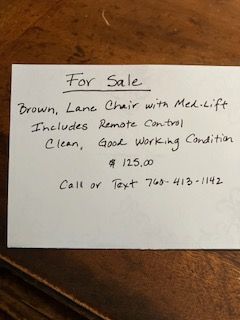 For Sale
Brown, Lane Chair with Med-Lift
Includes Remote Control
Clean, Good Working Condition
$ 125.00
Call or Text 760-413-1142